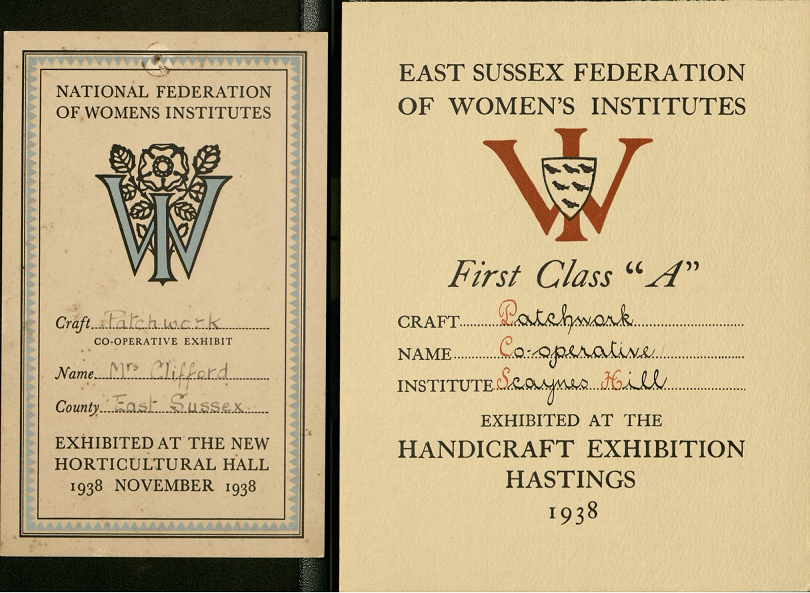 NATIONAL FEDERATION
OF WOMENS INSTITUTES
WI
Craft Patchwork
CO-OPERATIVE EXHIBIT
Name Mrs Clifford
County East Sussex
EXHIBITED AT THE NEW
HORTICULTURAL HALL
1938 NOVEMBER 1938
EAST SUSSEX FEDERATION
OF WOMEN'S INSTITUTES
WI
First Class "A"
CRAFT Patchwork
NAME Co-operative
INSTITUTE Scaynes Hill
EXHIBITED AT THE
HANDICRAFT EXHIBITION
HASTINGS
1938